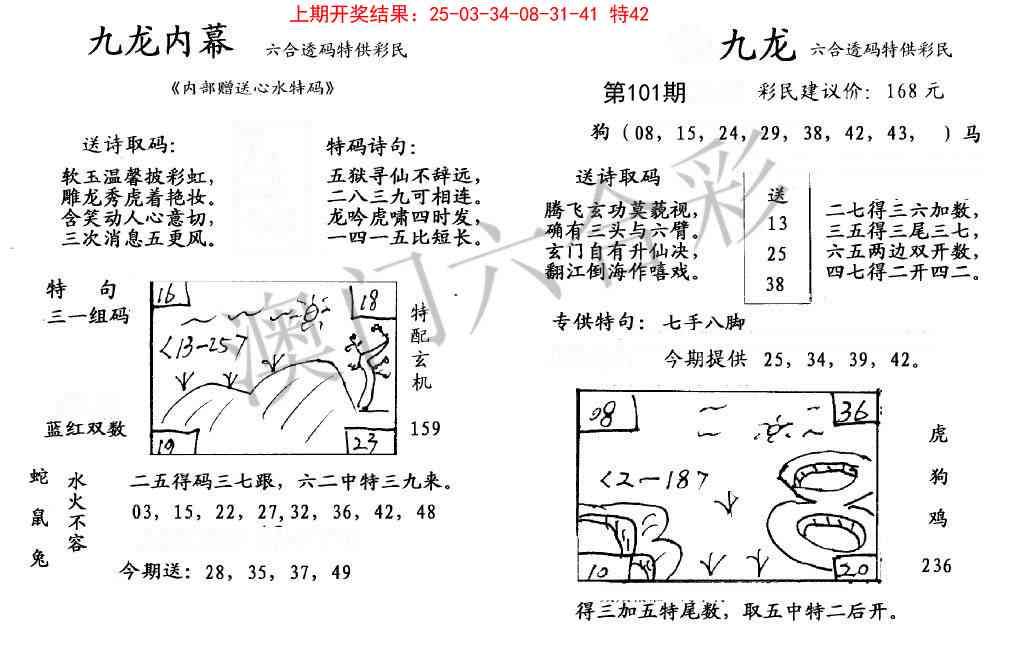 上期开奖结果：25-03-34-08-31-41 特42
九龙内幕 六合透码特供彩民
《内部赠送心水特码》
送诗取码：
软玉温馨披彩虹，
雕龙秀虎着艳妆。
含笑动人心意切，
三次消息五更风。
特码诗句：
五狱寻仙不辞远，
二八三九可相连。
龙吟虎啸四时发，
一四一五比短长。
特 句
三一组码
蓝红双数
16
18
<13-257
19
23
特配玄机
159
蛇
鼠
兔
水火不容
二五得码三七跟，六二中特三九来。
03，15，22，27，32，36，42，48
今期送：28，35，37，49
九龙 六合透码特供彩民
第101期 彩民建议价：168元
狗（08，15，24，29，38，42，43， ）马
送诗取码
腾飞玄功莫藐视，
确有三头与六臂。
玄门自有升仙决，
翻江倒海作嘻戏。
送
13
25
38
二七得三六加数，
三五得三尾三七，
六五两边双开数，
四七得二开四二。
专供特句：七手八脚
今期提供 25，34，39，42。
08
36
<2-187
10
20
虎
狗
鸡
236
得三加五特尾数，取五中特二后开。
澳门六合彩